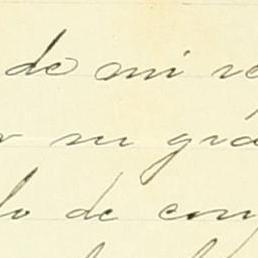 de mi re
r su gra
lo de con